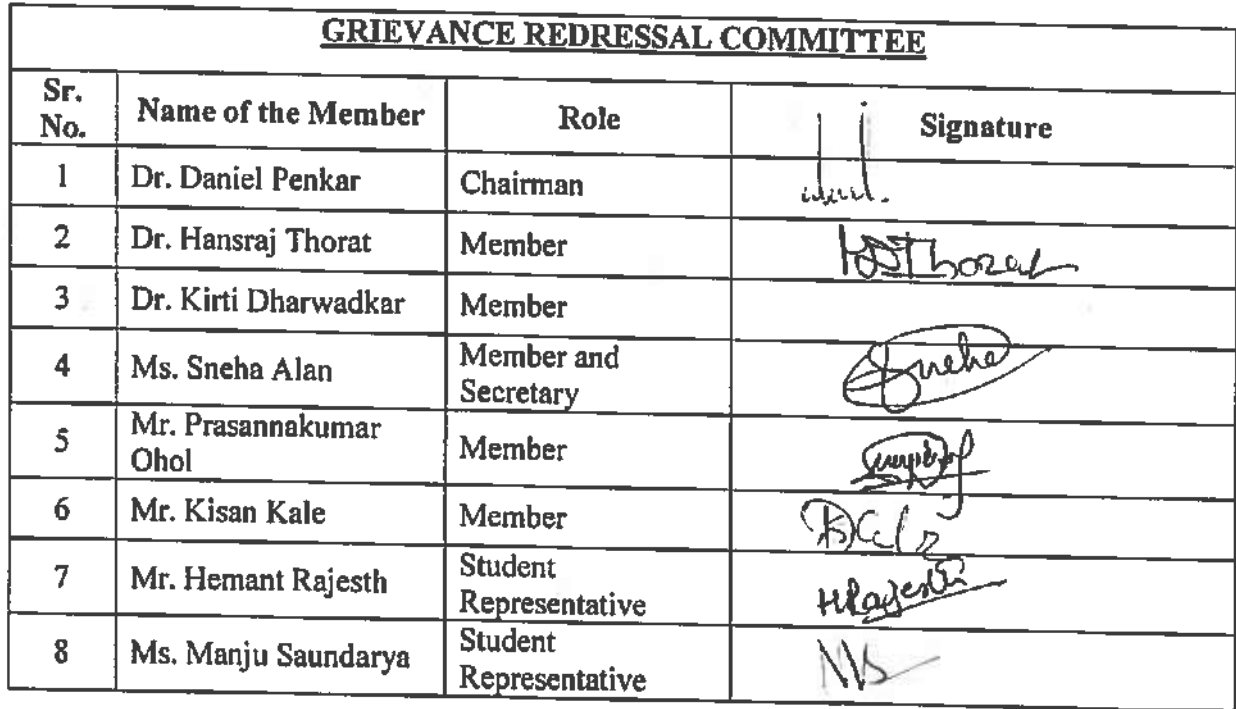 GRIEVANCE REDRESSAL COMMITTEE
Sr. No. Name of the Member Role Signature
1 Dr. Daniel Penkar Chairman
2 Dr. Hansraj Thorat Member HDThorat
3 Dr. Kirti Dharwadkar Member
4 Ms. Sneha Alan Member and Secretary Sneha
5 Mr. Prasannakumar Ohol Member
6 Mr. Kisan Kale Member
7 Mr. Hemant Rajesth Student Representative HRajesth
8 Ms. Manju Saundarya Student Representative